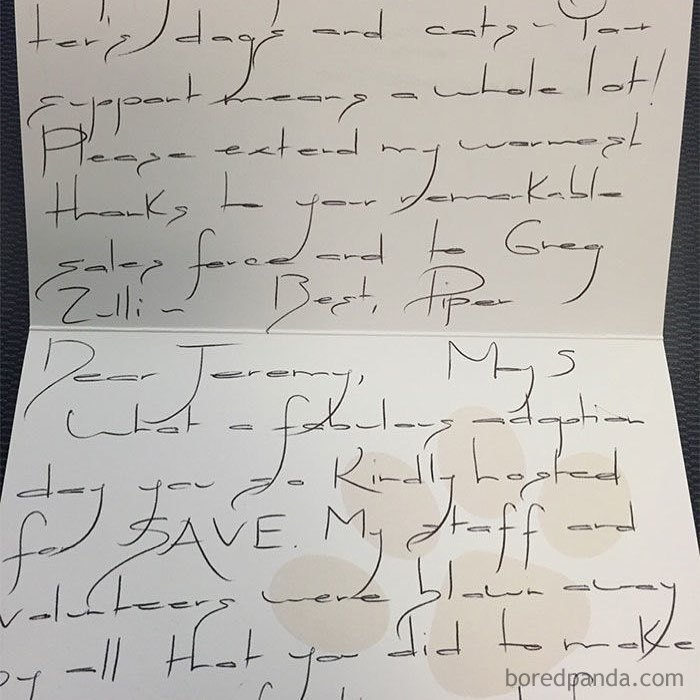 ter's days and cats - Your
support means a whole lot!
Please extend my warmest
thanks to your remarkable
sales force and to Greg
Zulli - Best, Piper
Dear Jeremy, May 5
What a fabulous adoption
day you so kindly hosted
for SAVE. My staff and
volunteers were blown away
by all that you did to make
boredpanda.com